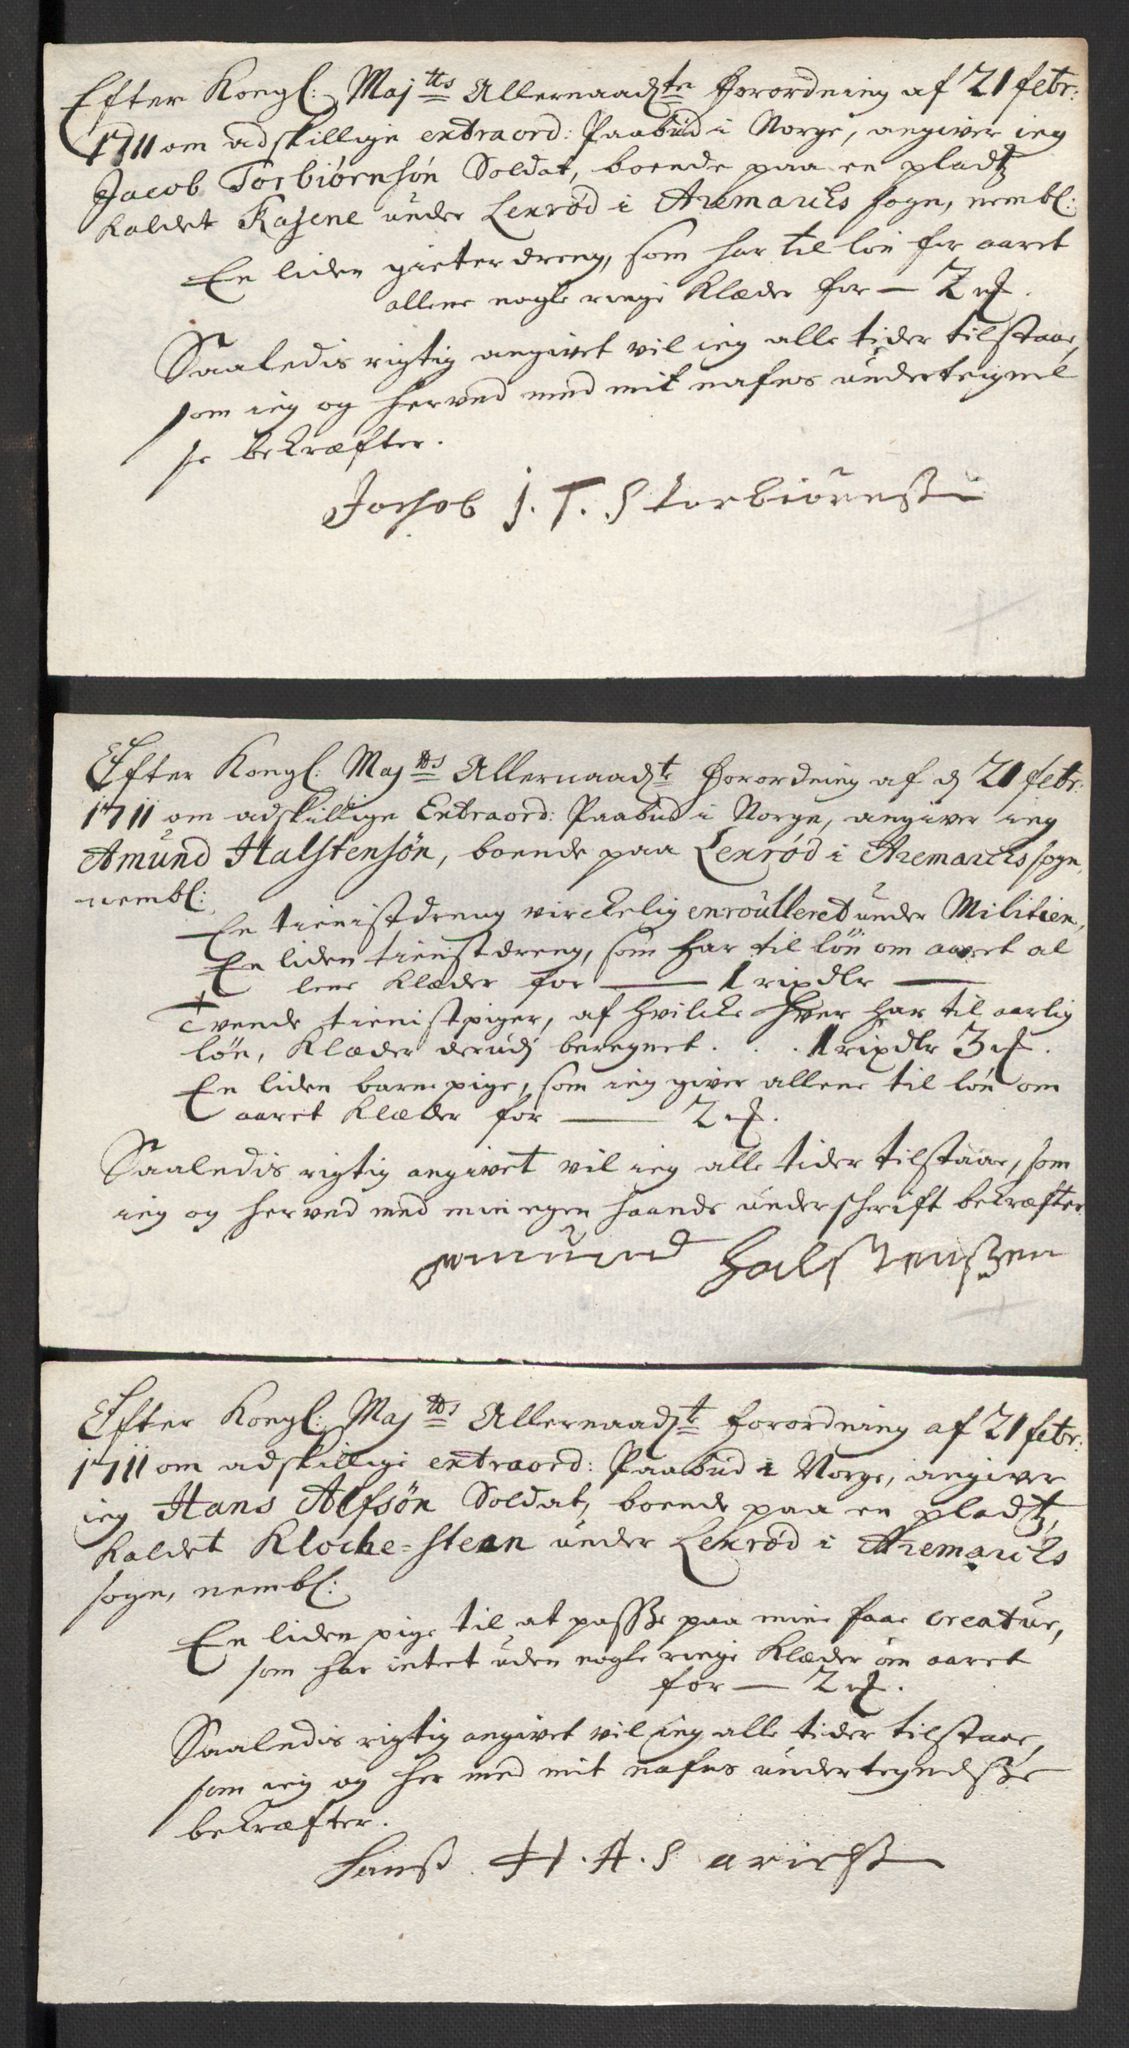 Efter Kongl: Maj:tts Allernaadste Forordning af 21 febr:
1711 om adskillige extraord: Paabud i Norge, angiver ieg
Jacob Torbiørnsøn Soldat, boende paa en pladtz
kaldet Kasene under Lenrød i Aremarchs sogn, nembl:
En liden gieterdreng, som har til løn for aaret
allene nogle ringe Klæder for — 2
Saaledis rigtig angivet vil ieg alle tider tilstaae,
som ieg og herved med mit nafns underteignel
se bekræfter.
Jochob J. T. S torbiørnss
Efter Kongl: Maj:tts Allernaadste Forordning af d 21 febr:
1711 om adskillige Extraord: Paabud i Norge, angiver ieg
Amund Halstensøn, boende paa Lenrød i Aremarchs sogn,
nembl:
En tienistdreng virckelig enroulleret under Militien,
En liden tienistdreng, som har til løn om aaret al
lene Klæder for — 1 rixdlr —
Tvende tienistpiger, af hvilcke hver har til aarlig
løn, Klæder derudj beregnet . . . 1 rixdlr 3
En liden barnepige, som ieg giver allene til løn om
aaret Klæder for — 2
Saaledis rigtig angivet vil ieg alle tider tilstaae, som
ieg og herved med min egen haands underschrift bekræfter.
Amund Halstenssen
Efter Kongl: Maj:tts Allernaadste forordning af 21 febr:
1711 om adskillige extraord: Paabud i Norge, angiver
ieg Hans Alfsøn Soldat, boende paa en pladtz,
kaldet Kloche-steen under Lenrød i Aremarchs
sogn, nembl:
En liden pige til at passe paa mine faae Creatur,
som har intet uden nogle ringe Klæder om aaret
for — 2
Saaledis rigtig angivet vil ieg alle tider tilstaae,
som ieg og her med mit nafns undertegnelsse
bekræfter.
Hanss H. A. S